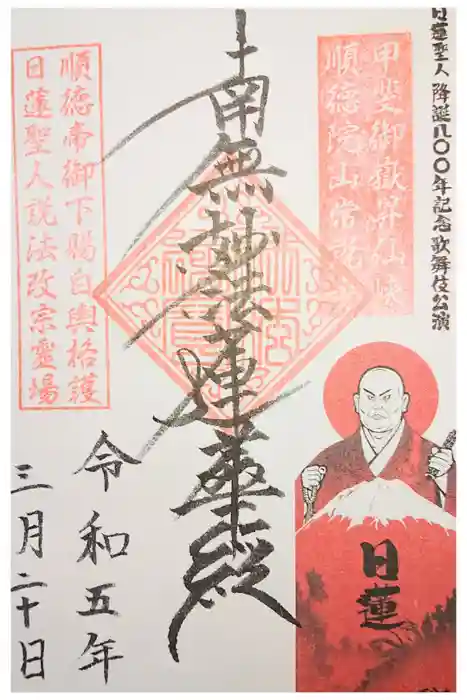 日蓮聖人降誕八〇〇年記念歌舞伎公演
甲斐御嶽昇仙峡
順徳院山常説寺
南無妙法蓮華経
順徳帝御下賜自輿格護
日蓮聖人説法改宗靈場
令和五年
三月二十日
日蓮